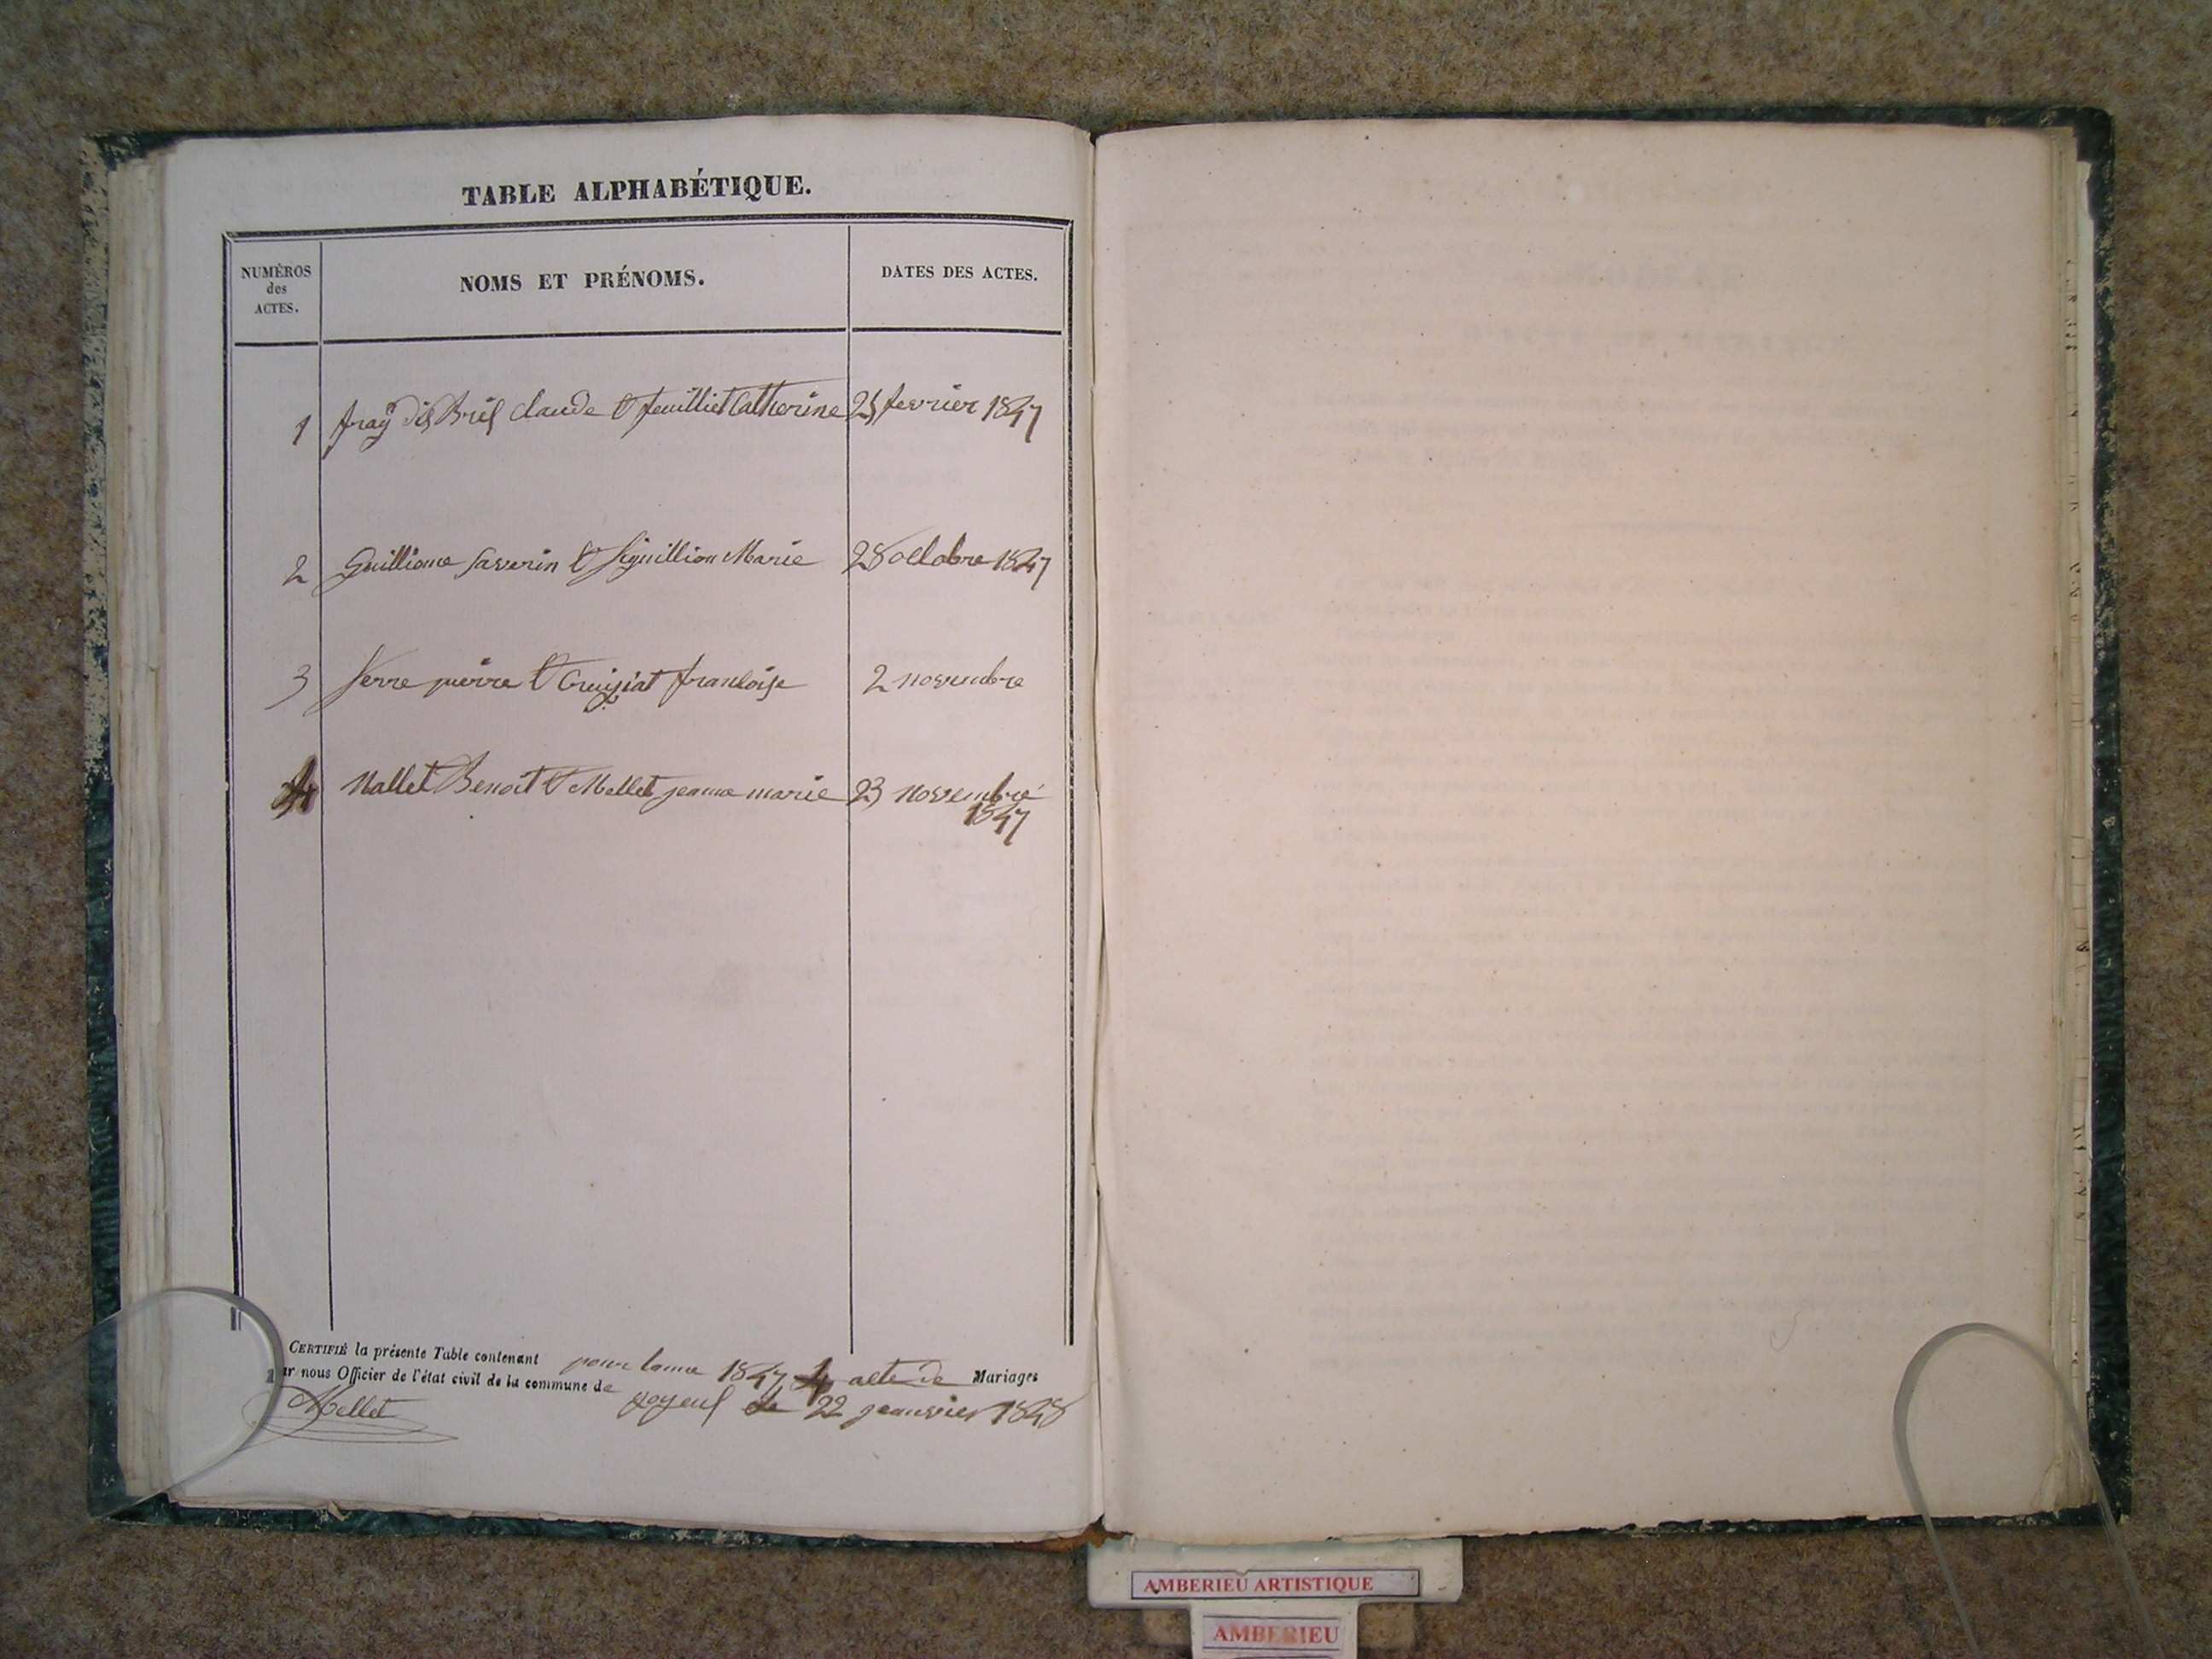 TABLE ALPHABÉTIQUE.
NUMÉROS
des
ACTES.
NOMS ET PRÉNOMS.
DATES DES ACTES.
1 fray dit Bril claude & feuilliet Catherine 25 fevrier 1847
2 Guilliome saverin & Siguillion Marie 28 octobre 1847
3 Serre pierre & Cruiziat francoise 2 novembre
4 Mallet Benoit & Mellet jeanne marie 23 novembre
1847
CERTIFIÉ la présente Table contenant pour lanne 1847 4 acte de Mariages
par nous Officier de l'état civil de la commune de le 22 jeanvier 1848
Mellet
AMBERIEU ARTISTIQUE
AMBERIEU